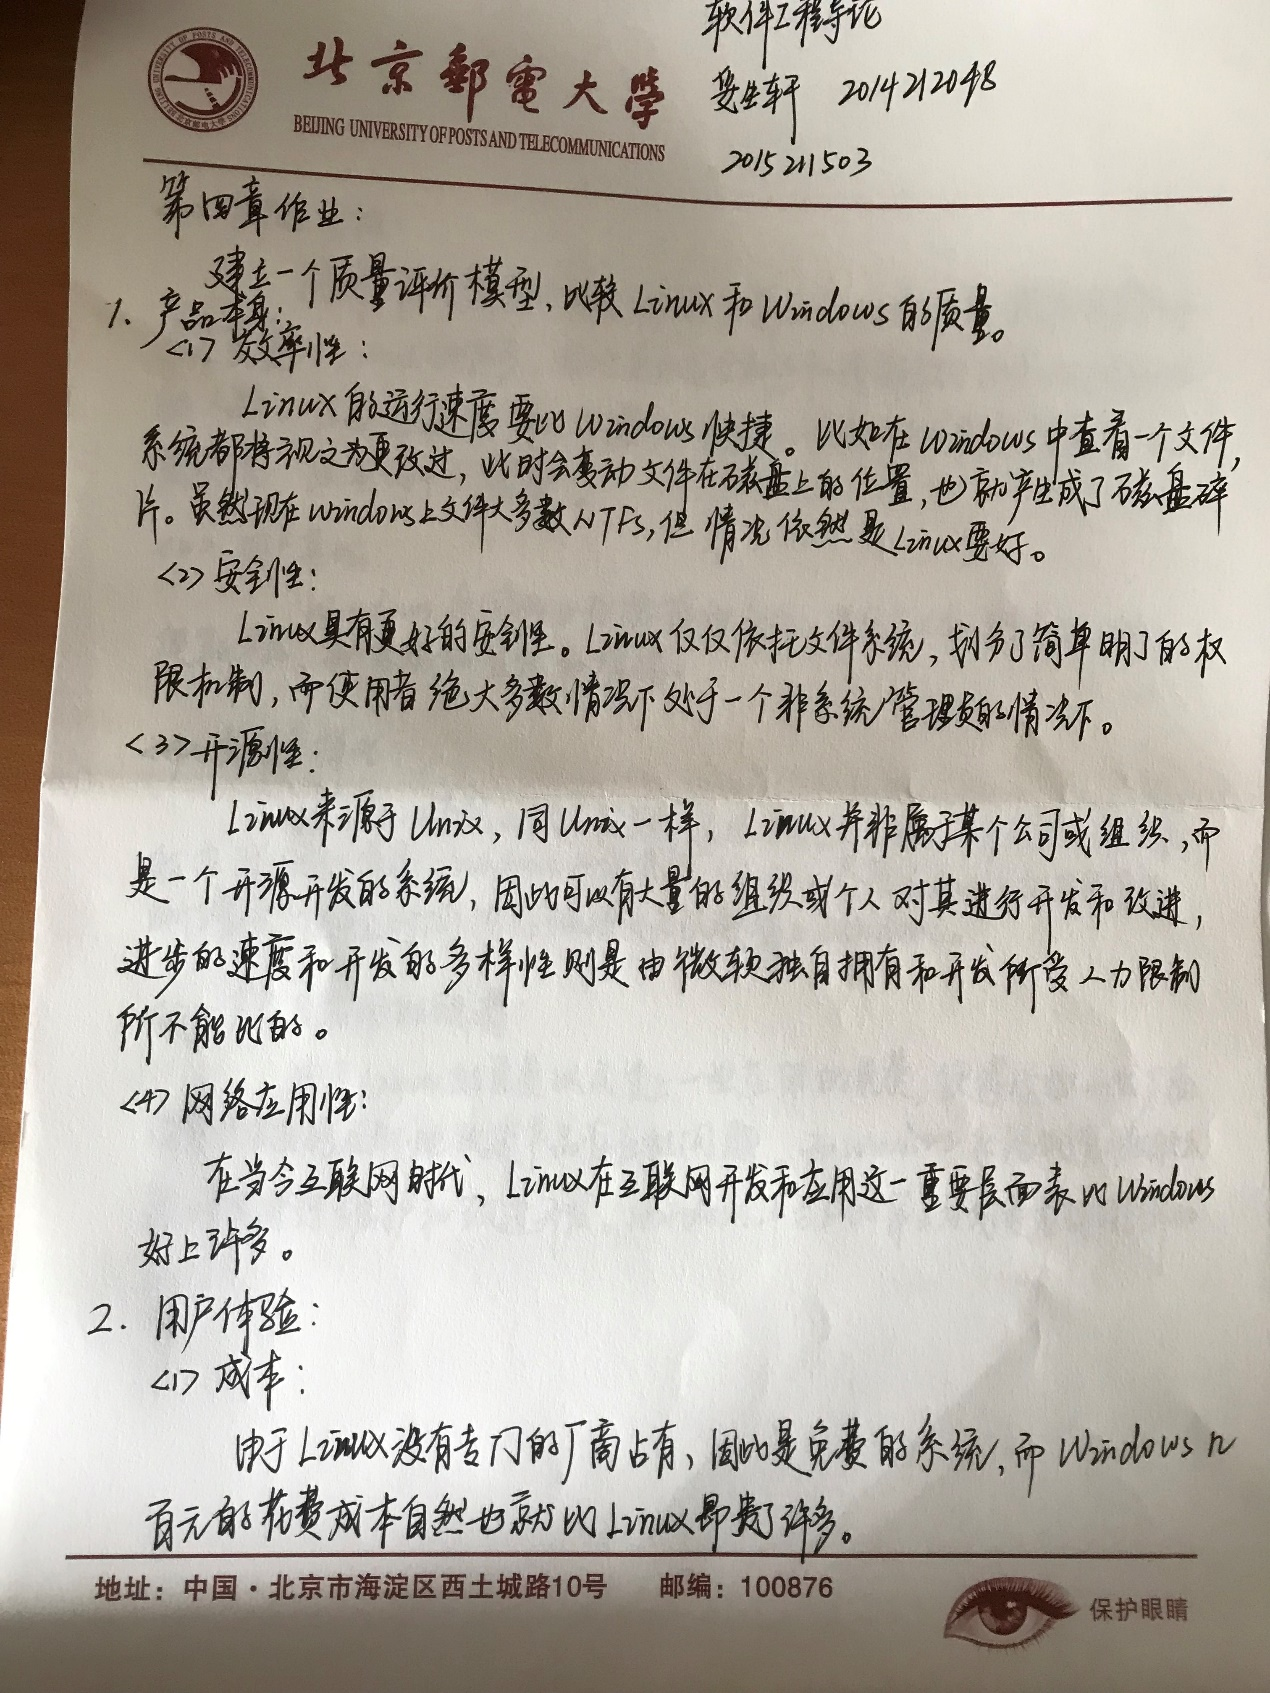 软件工程导论
北京邮电大学
BEIJING UNIVERSITY OF POSTS AND TELECOMMUNICATIONS
生轩 2014212048
2015211503
第四章作业：
建立一个质量评价模型，比较Linux和Windows的质量。
1. 产品本身：
<1> 效率性：
Linux的运行速度要比Windows快捷。比如在Windows中查看一个文件，
系统都将视文为更改过，此时会变动文件在磁盘上的位置，也就产生成了磁盘碎
片。虽然现在windows上文件大多数NTFS，但情况依然是Linux要好。
<2> 安全性：
Linux具有更好的安全性。Linux仅仅依托文件系统，划分了简单明了的权
限机制，而使用者绝大多数情况下处于一个非系统管理员的情况下。
<3> 开源性：
Linux来源于Unix，同Unix一样，Linux并非属于某个公司或组织，而
是一个开源开发的系统，因此可以有大量的组织或个人对其进行开发和改进，
进步的速度和开发的多样性则是由微软独自拥有和开发所受人力限制
所不能比的。
<4> 网络应用性：
在当今互联网时代，Linux在互联网开发和应用这一重要层面表比Windows
好上许多。
2. 用户体验：
<1> 成本：
由于Linux没有专门的厂商占有，因此是免费的系统，而Windows n
百元的花费成本自然也就比Linux昂贵了许多。
地址：中国·北京市海淀区西土城路10号 邮编：100876
保护眼睛